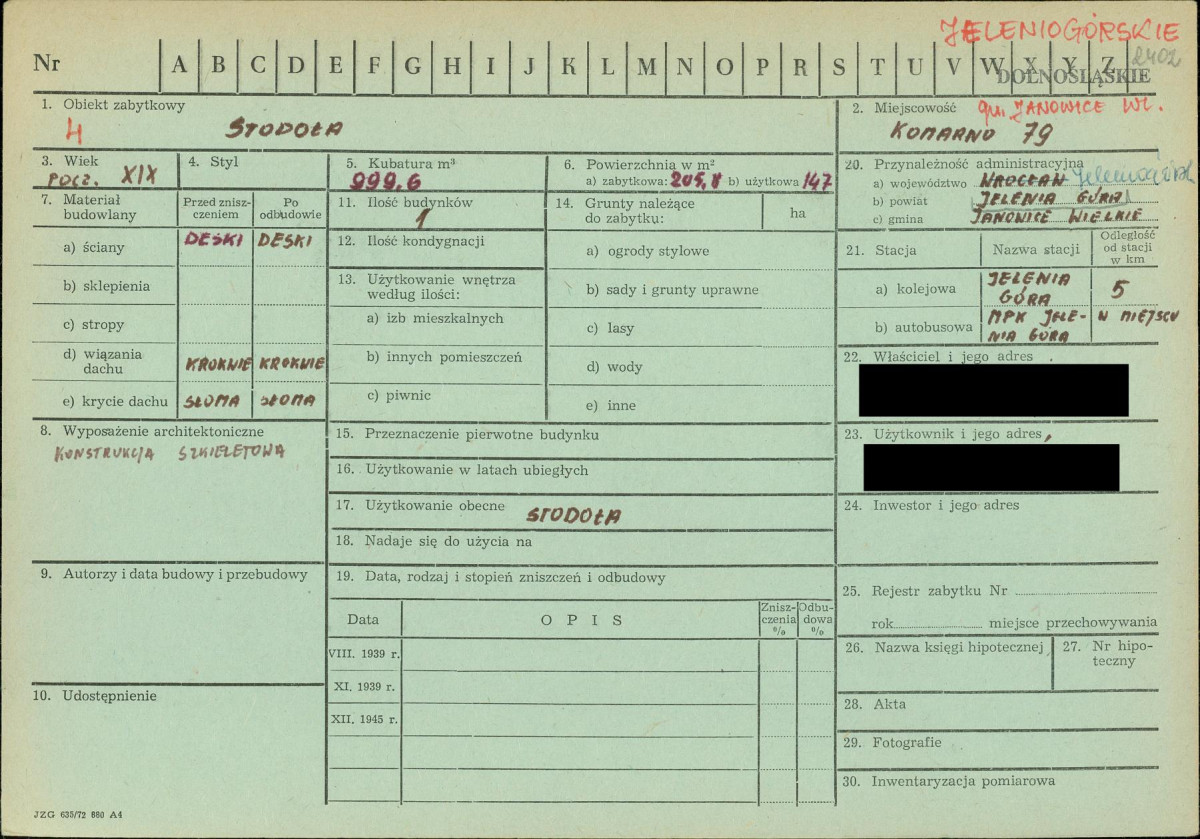 JELENIOGÓRSKIE
Nr A B C D E F G H I J K L M N O P R S T U V W X Y Z 2402
DOLNOŚLĄSKIE
1. Obiekt zabytkowy
4 STODOŁA
2. Miejscowość gm. JANOWICE WL.
KOMARNO 79
3. Wiek
POCZ. XIX
4. Styl
5. Kubatura m³
999,6
6. Powierzchnia w m²
a) zabytkowa: 205,8 b) użytkowa 147
20. Przynależność administracyjna
a) województwo WROCŁAW Jeleniogórsk
b) powiat JELENIA GÓRA
c) gmina JANOWICE WIELKIE
7. Materiał budowlany
Przed zniszczeniem
Po odbudowie
a) ściany DESKI DESKI
b) sklepienia
c) stropy
d) wiązania dachu KROKWIE KROKWIE
e) krycie dachu SŁOMA SŁOMA
11. Ilość budynków
1
12. Ilość kondygnacji
13. Użytkowanie wnętrza według ilości:
a) izb mieszkalnych
b) innych pomieszczeń
c) piwnic
14. Grunty należące do zabytku: ha
a) ogrody stylowe
b) sady i grunty uprawne
c) lasy
d) wody
e) inne
21. Stacja Nazwa stacji Odległość od stacji w km
a) kolejowa JELENIA GÓRA 5
b) autobusowa MPK JELENIA GÓRA W MIEJSCU
22. Właściciel i jego adres
23. Użytkownik i jego adres
8. Wyposażenie architektoniczne
KONSTRUKCJA SZKIELETOWA
15. Przeznaczenie pierwotne budynku
16. Użytkowanie w latach ubiegłych
17. Użytkowanie obecne STODOŁA
18. Nadaje się do użycia na
24. Inwestor i jego adres
9. Autorzy i data budowy i przebudowy
19. Data, rodzaj i stopień zniszczeń i odbudowy
Data OPIS Zniszczenia % Odbudowa %
VIII. 1939 r.
XI. 1939 r.
XII. 1945 r.
25. Rejestr zabytku Nr
rok miejsce przechowywania
26. Nazwa księgi hipotecznej
27. Nr hipoteczny
10. Udostępnienie
28. Akta
29. Fotografie
30. Inwentaryzacja pomiarowa
JZG 635/72 880 A4